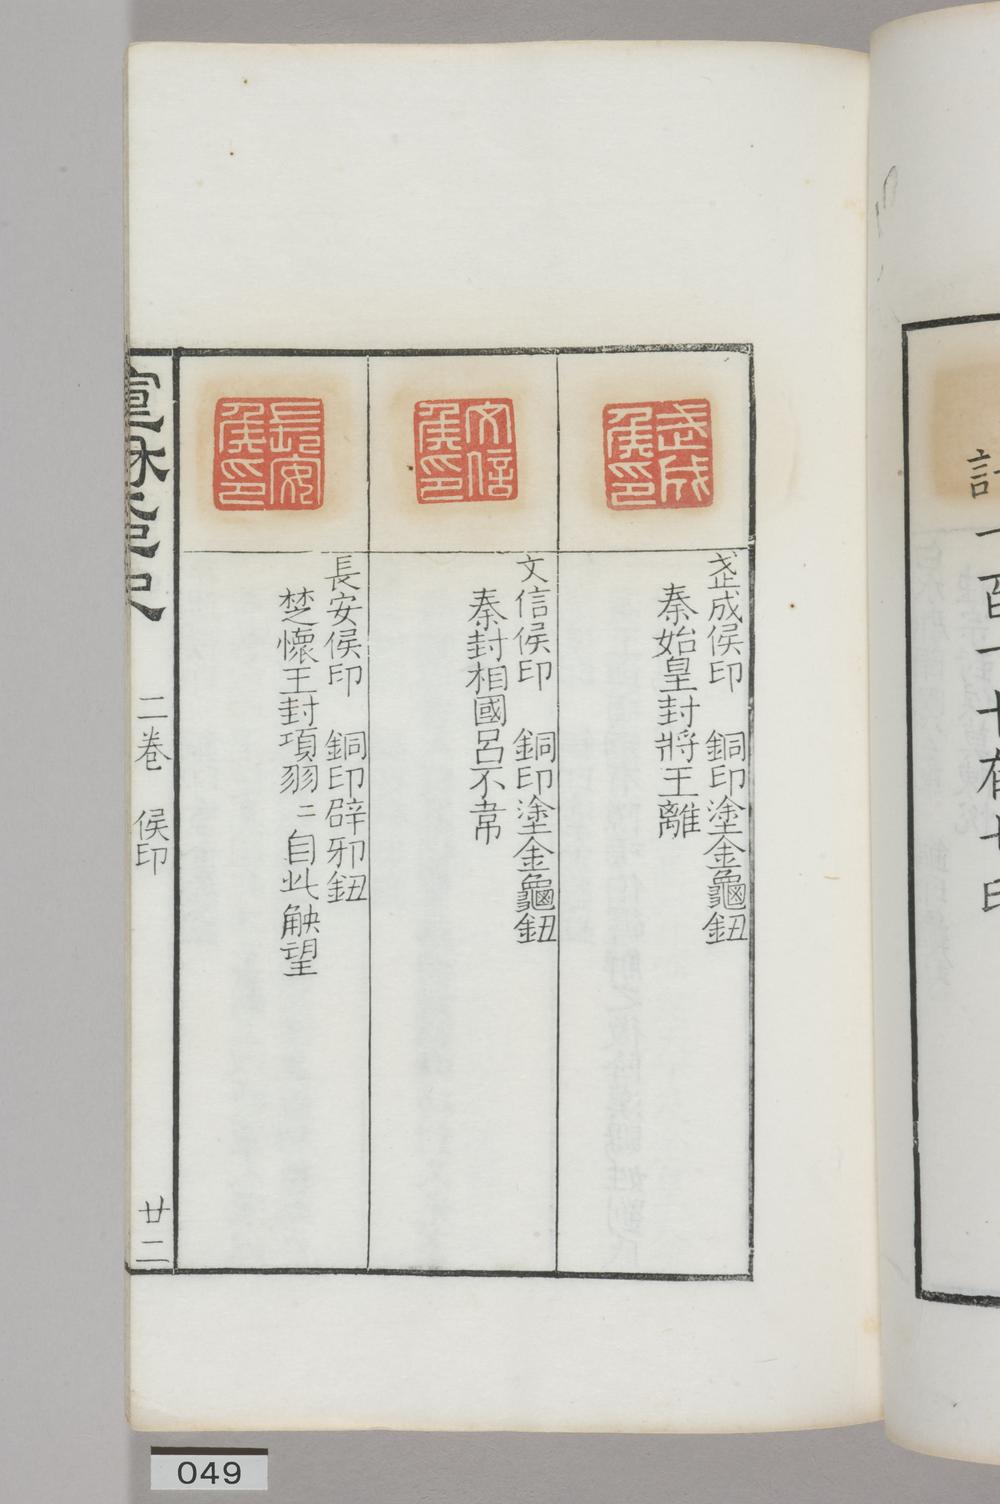 計一百一十有七印
武成
侯印
武成侯印　銅印塗金龜鈕
秦始皇封將王離
文信
侯印
文信侯印　銅印塗金龜鈕
秦封相國呂不韋
長安
侯印
長安侯印　銅印辟邪鈕
楚懷王封項羽〻自此觖望
二卷　侯印
廿二
049